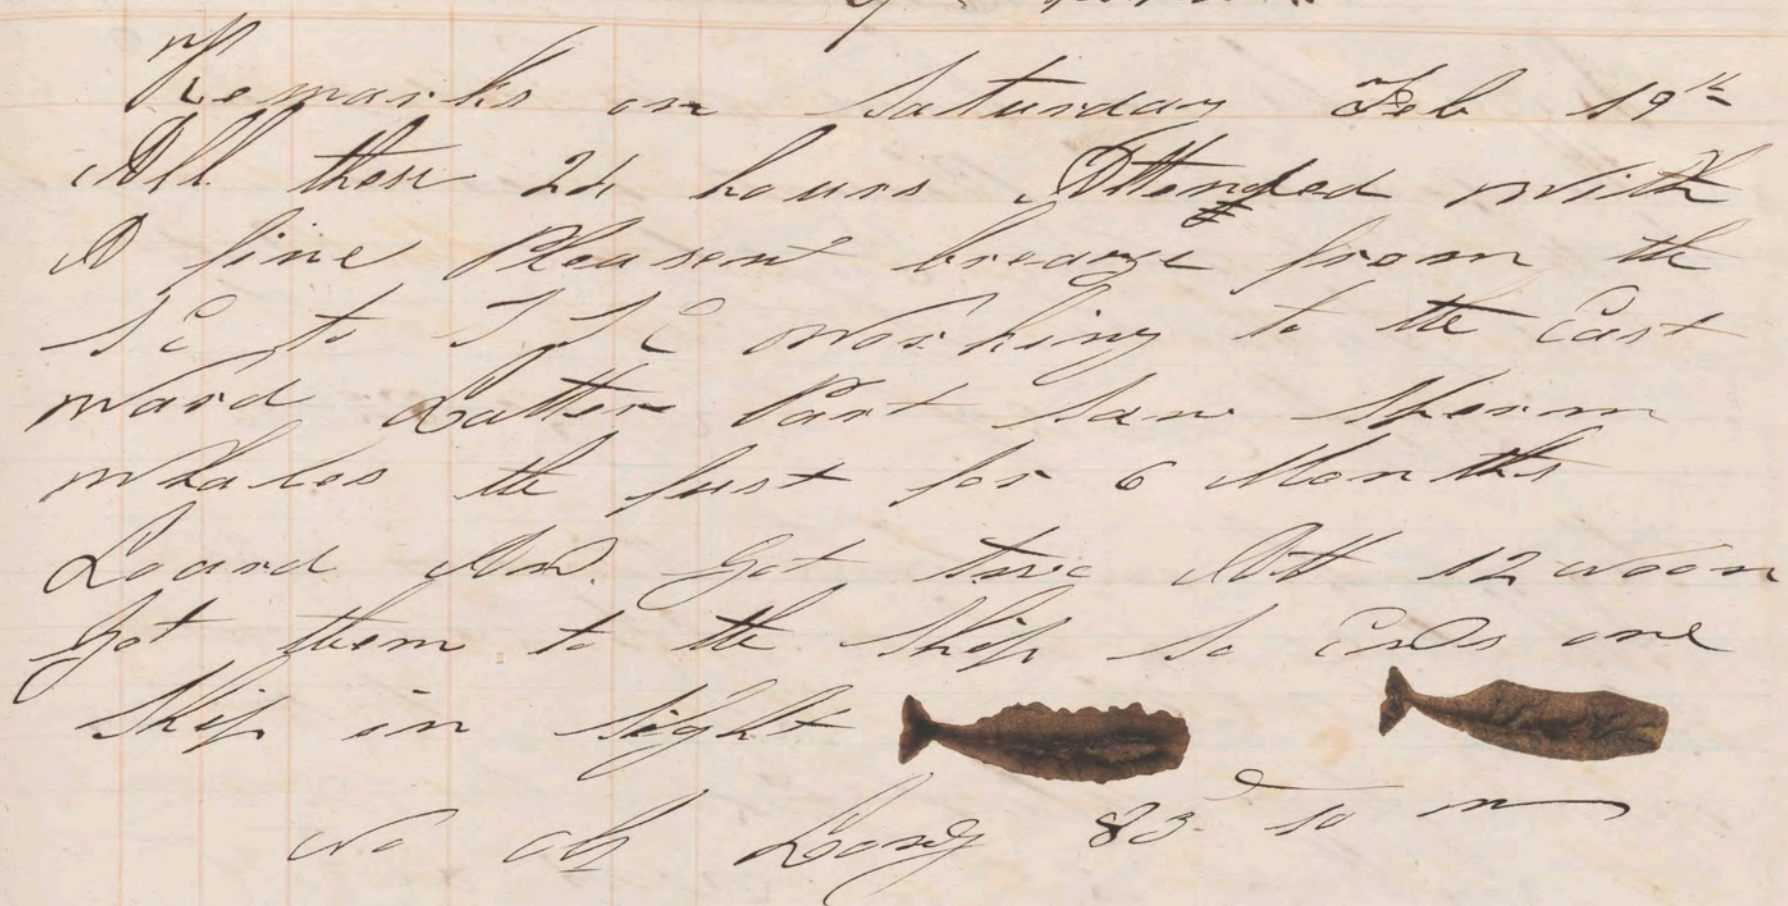 Remarks on Saturday Feb 19th
All these 24 hours Attended with
A fine Pleasent breaze from the
SE to SSE Working to the East
ward Latter Part saw Sperm
Whales the furst for 6 Months
Loard And Got two Att 12 Noon
Got them to the Ship So Ends one
Ship in Sight
No Ob Long 83 10 m